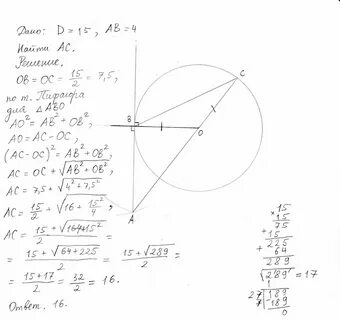 Дано: D = 15, AB = 4
Найти AC.
Решение.
OB = OC = 15/2 = 7,5,
по т. Пифагора
для △ABO
AO² = AB² + OB²,
AO = AC - OC,
(AC - OC)² = AB² + OB²,
AC = OC + √(AB² + OB²),
AC = 7,5 + √(4² + 7,5²)
AC = 15/2 + √(16 + 15²/4),
AC = (15 + √(64+15²))/2 =
= (15 + √(64 + 225))/2 = (15 + √289)/2 =
= (15 + 17)/2 = 32/2 = 16.
Ответ. 16.
C
B
O
A
× 15
15
75
+ 15
225
+ 64
289
√289 = 17
1
27 189
7 189
0